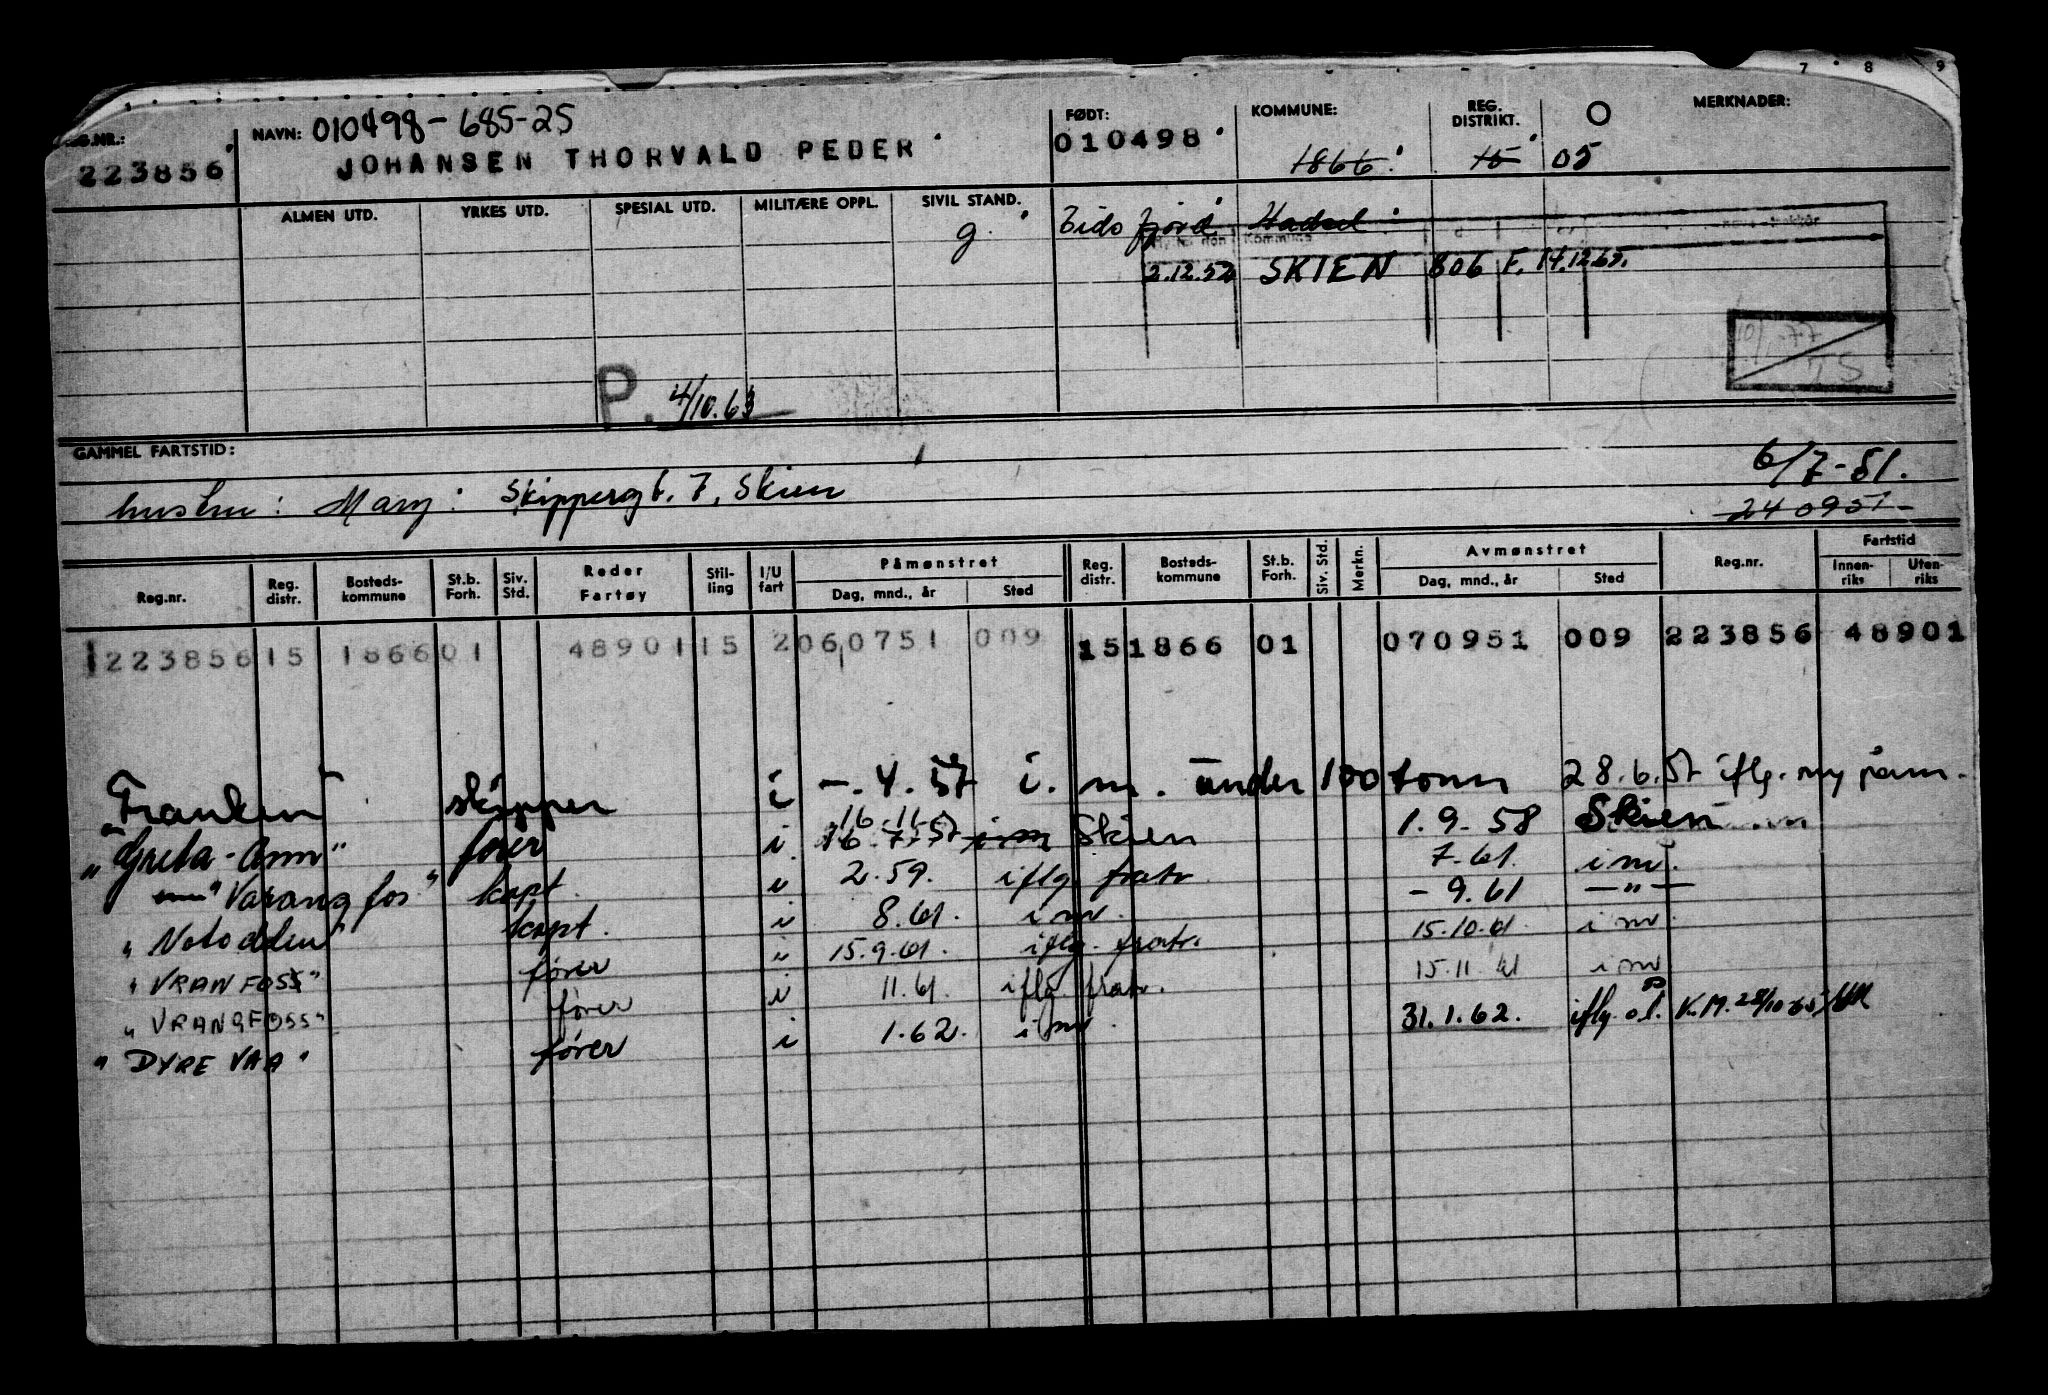 7 8 9
REG.NR.: NAVN: 010498-685-25 FØDT: KOMMUNE: REG. DISTRIKT. O MERKNADER:
223856 JOHANSEN THORVALD PEDER 010498 1866 15 05
ALMEN UTD. YRKES UTD. SPESIAL UTD. MILITÆRE OPPL. SIVIL STAND. Eidsfjord Hadsel
g
2.12.52 SKIEN 806 F. 17.12.65.
10/1-77
P. 4/10.63
GAMMEL FARTSTID: 6/7-51.
hustru: Mary: Skippergt. 7, Skien 240951
Påmønstret Avmønstret Fartstid
Reg.nr. Reg. distr. Bosteds-kommune St.b. Forh. Siv. Std. Reder Fartøy Stil-ling I/U fart Dag, mnd., år Sted Reg. distr. Bosteds-kommune St.b. Forh. Siv. Std. Merkn. Dag, mnd., år Sted Reg.nr. Innen-riks Uten-riks
1223856 15 1866 01 48901 15 2 060751 009 15 1866 01 070951 009 223856 48901
skipper i -.4.57 i. m. under 100 tonn 28.6.57 iflg. ny påm.
16-11-
"Greta-Ann" fører i 16.7.57 Skien 1.9-58 Skien
"Varangfos" kapt. i 2.59. iflg. fratr. 7-61. i mr.
"Notodden" kapt. i 8.61. i mr. -9.61 -"-
"VRANFOSS" fører i 15.9.61. iflg. fratr. 15.10.61. i mr
"VRANGFOSS" fører i 11.61. iflg. fratr. 15.11.61 i mr
"DYRE VAA" fører i 1.62. i mr. 31.1.62. iflg. o.l. K.M. 28/10-65